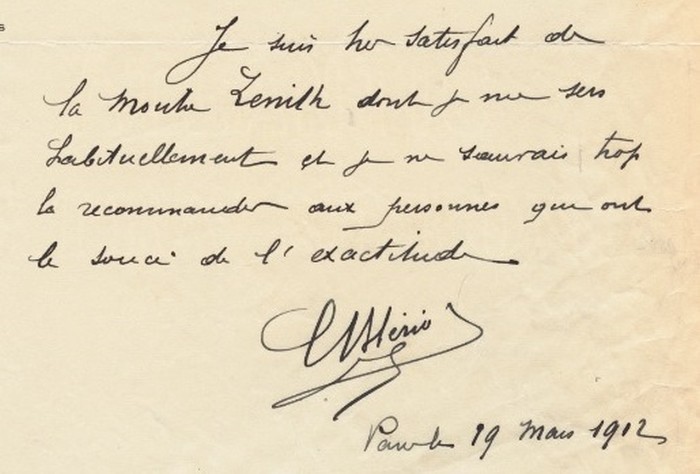 Je suis très satisfait de
la montre Zenith dont je me sers
habituellement et je ne saurais trop
la recommander aux personnes qui ont
le souci de l'exactitude.
L Blériot
le 19 Mars 1912